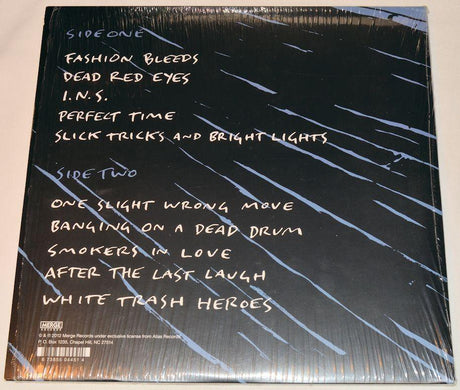 SIDE ONE
FASHION BLEEDS
DEAD RED EYES
I.N.S.
PERFECT TIME
SLICK TRICKS AND BRIGHT LIGHTS
SIDE TWO
ONE SLIGHT WRONG MOVE
BANGING ON A DEAD DRUM
SMOKERS IN LOVE
AFTER THE LAST LAUGH
WHITE TRASH HEROES
MERGE
RECORDS
© & ℗ 2012 Merge Records under exclusive license from Alias Records
P.O. Box 1235, Chapel Hill, NC 27514